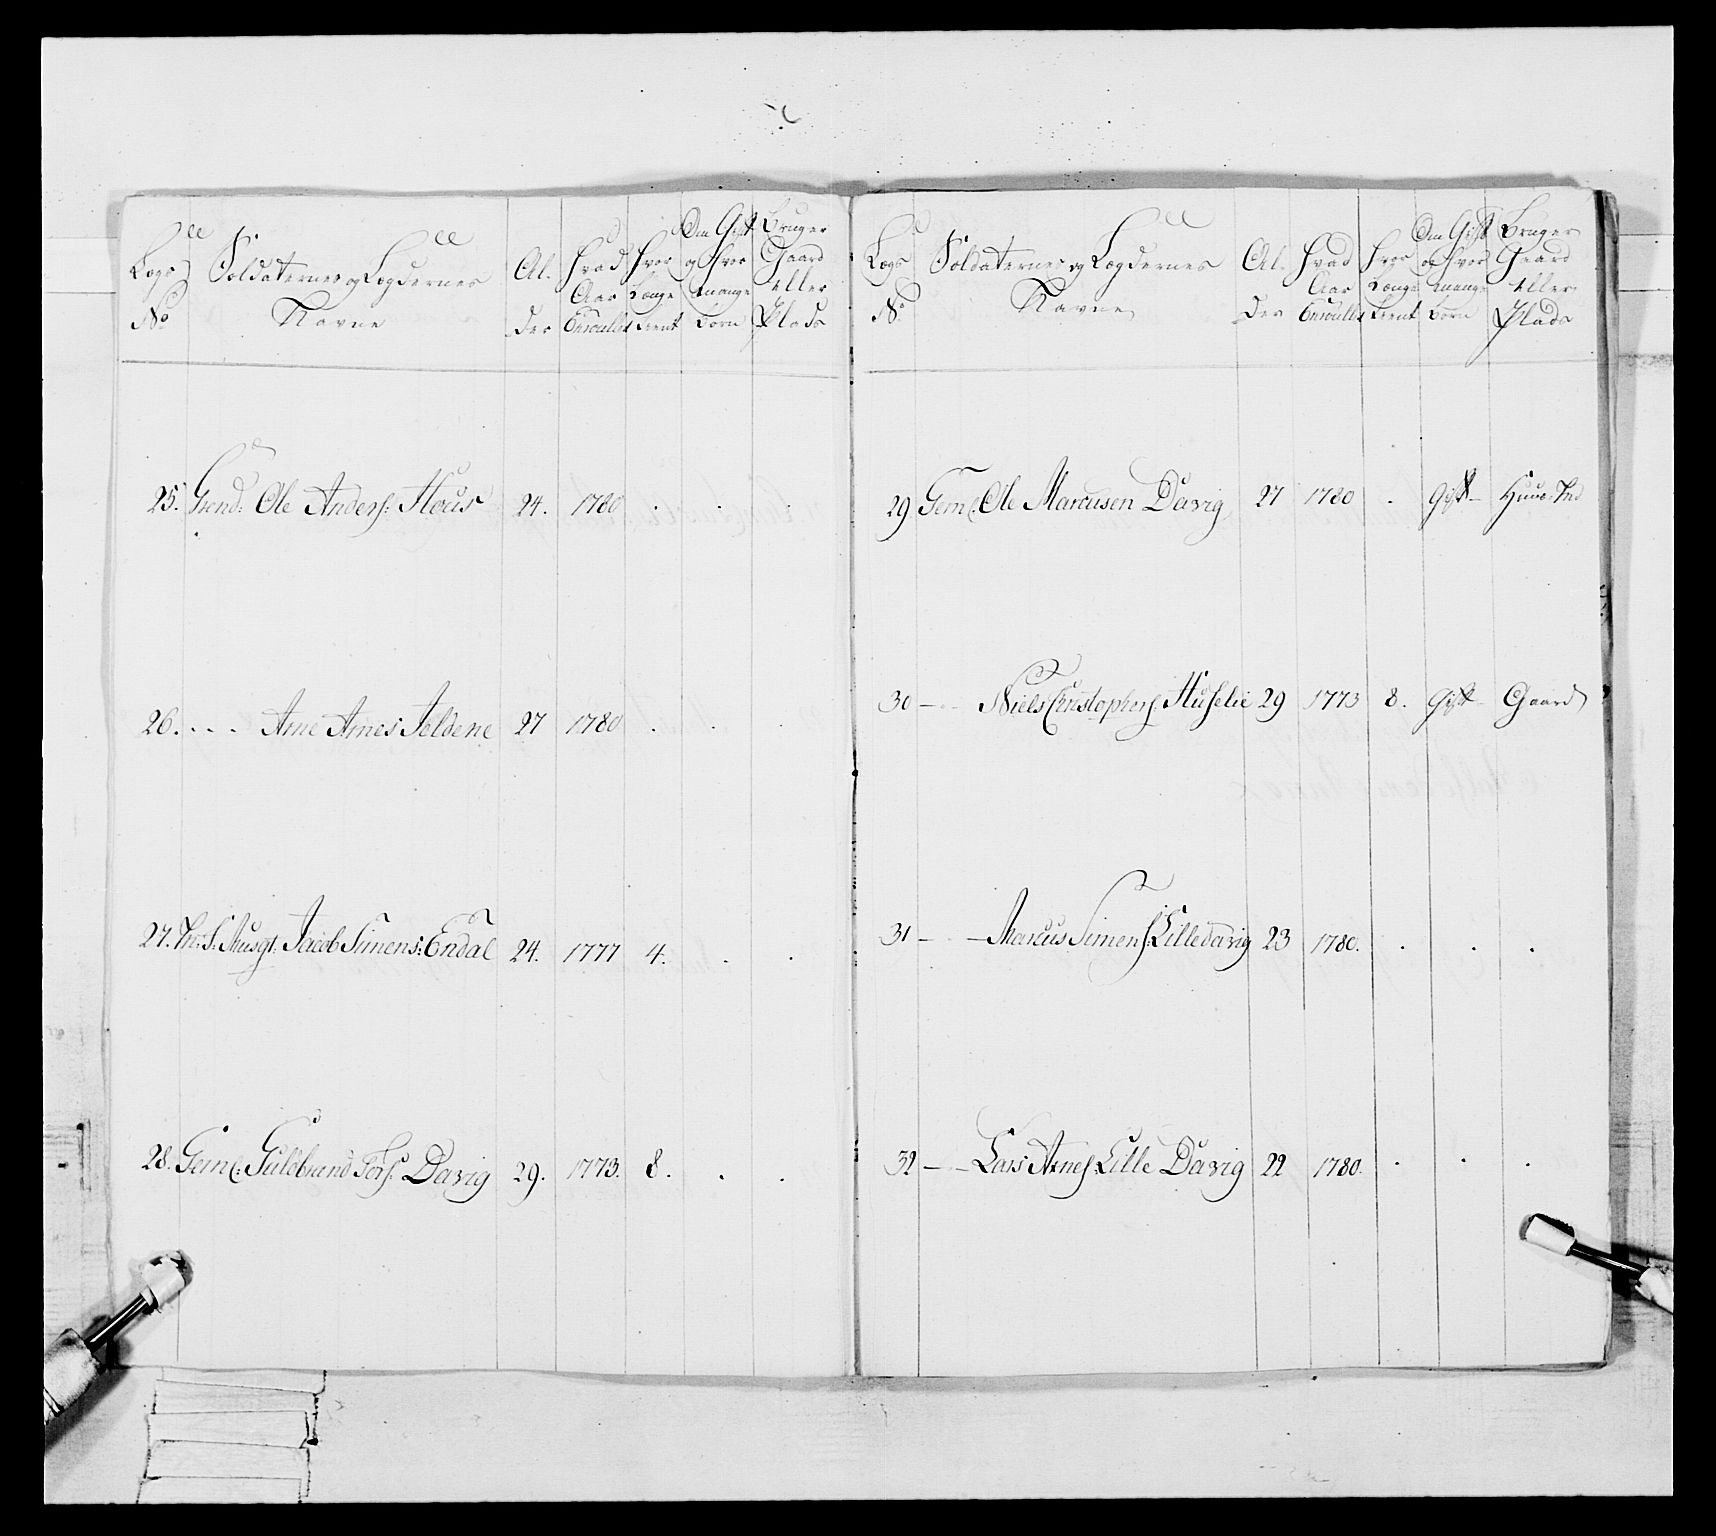 Lægs No
Soldaternes og Lægdernes Navne
Al. der
Hvad Aar Enroullet
Hvor Længe tient
Om Gift og hvor mange Børn
Bruger Gaard eller Plads
25. Grend: Ole Anders: Hous 24. 1780 . . .
26. - - - Arne Arnes Jeldene 27 1780 . . .
27. Jacob Simens: Endal 24. 1777 4. . .
28. Geml: Guldbrand Tors: Davig 29. 1773. 8. . .
Lægs No
Soldaternes og Lægdernes Navne
Al. der
Hvad Aar Enroullet
Hvor Længe tient
Om Gift og hvor mange Børn
Bruger Gaard eller Plads
29 Geml: Ole Marcusen Davig 27 1780 . Gift
30 — Niels Christophers Huselie 29 1773 8. Gift Gaard
31 — Marcus Simens: Lilledavig 23 1780. . . .
32 — Lars Arnes: Lille Davig 22 1780. . . .